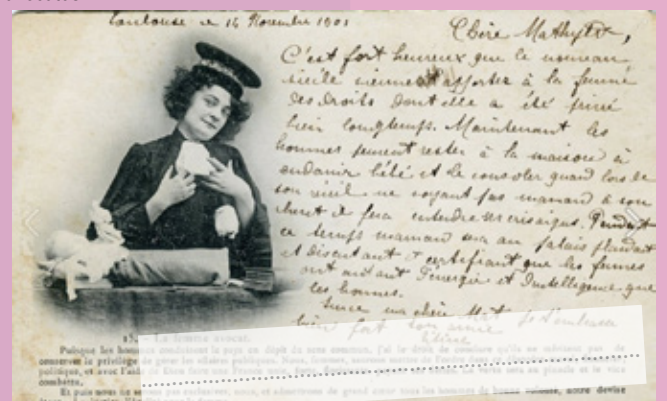 Toulouse le 14 Novembre 1901
Chère Mathylde,
C'est fort heureux que le nouveau
siècle vienne apporter à la femme
des droits dont elle a été privé
bien longtemps. Maintenant les
hommes peuvent rester à la maison à
endormir bébé et le consoler quand lors de
son réveil ne voyant pas maman à son
chevet il fera entendre ses cris aigus. Pendant
ce temps maman sera au palais plaidant
et discutant et certifiant que les femmes
ont autant d'énergie et d'intelligence que
les hommes.
ma chère je t'embrasse
bien fort ton amie
15. — La femme avocat.
Puisque les hommes conduisent le pays en dépit du sens commun, j'ai le droit de conclure qu'ils ne méritent pas de
conserver le privilège de gérer les affaires publiques. Nous, femmes,
politique, et avec l'aide de Dieu faire une France
combattu.
Et puis nous ne serons pas exclusives, nous, et admettrons de grand cœur tous les hommes de bonne volonté, notre devise